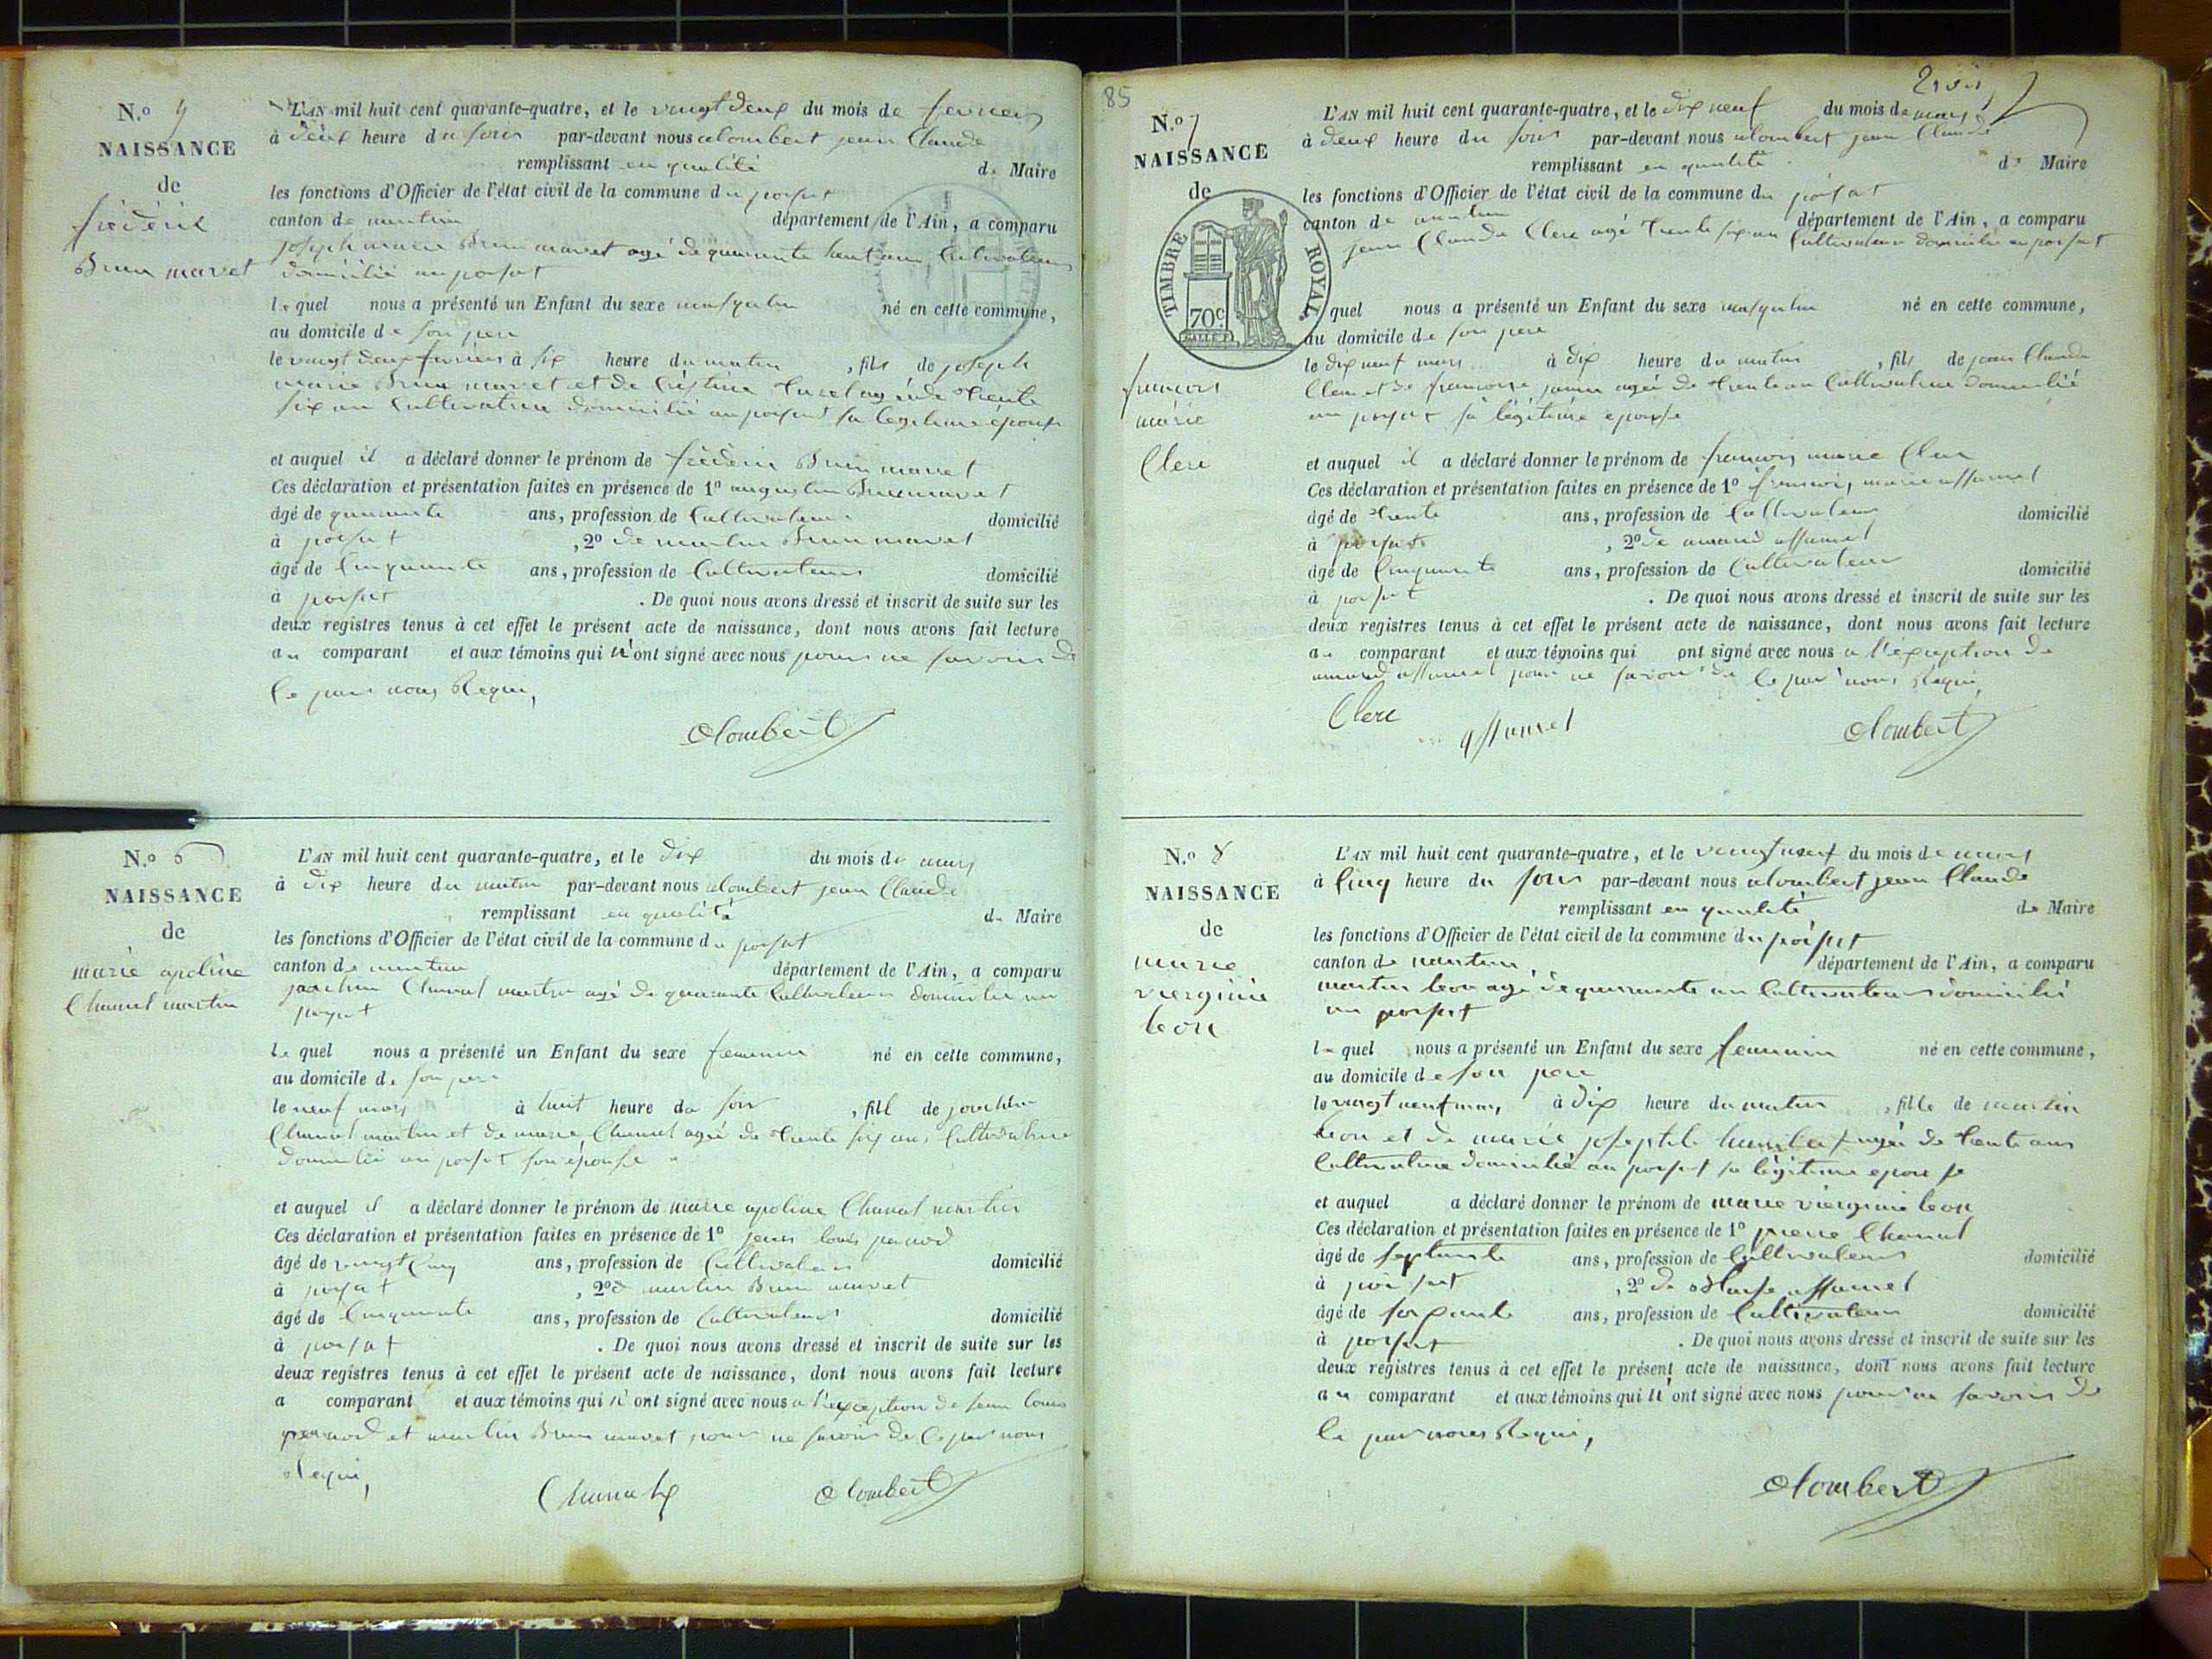 N.º 5
NAISSANCE
de
fréderic
Brun mavet
L'AN mil huit cent quarante-quatre, et le vingt deux du mois de fevrier
à deux heure du soir par-devant nous alombert jean Claude
remplissant en qualité de Maire
les fonctions d'Officier de l'état civil de la commune du poisat
canton de nantua département de l'Ain, a comparu
joseph marie Brun mavet agé de quarante huit ans Cultivateur
domicilié au poisat
le quel nous a présenté un Enfant du sexe masqulin né en cette commune,
au domicile de son pere
le vingt deux fevrier à six heure du matin, fils de joseph
marie Brun mavet et de agée de trente
six an Cultivatrice domicilié au poisat sa legitime épouse
et auquel il a déclaré donner le prénom de fréderic Brun mavet
Ces déclaration et présentation faites en présence de 1º augustin Brun mavet
âgé de quarante ans, profession de Cultivateur domicilié
à poisat, 2º de martin Brun mavet
âgé de Cinquante ans, profession de Cultivateur domicilié
à poisat. De quoi nous avons dressé et inscrit de suite sur les
deux registres tenus à cet effet le présent acte de naissance, dont nous avons fait lecture
au comparant et aux témoins qui n'ont signé avec nous pour ne savoir de
Ce par nous Requi,
alombert
N.º 6
NAISSANCE
de
marie apoline
Chanal martin
L'AN mil huit cent quarante-quatre, et le dix du mois de mars
à dix heure du matin par-devant nous alombert jean Claude
remplissant en qualité de Maire
les fonctions d'Officier de l'état civil de la commune du poisat
canton de nantua département de l'Ain, a comparu
joachim Chanal martin agé de quarante Cultivateur domicilié au
poisat
le quel nous a présenté un Enfant du sexe feminin né en cette commune,
au domicile de son pere
le neuf mars à huit heure du soir, fill de joachim
Chanal martin et de marie Chanal agée de trente six ans Cultivatrice
domicilié au poisat son épouse
et auquel il a déclaré donner le prénom de marie apoline Chanal martin
Ces déclaration et présentation faites en présence de 1º jean louis
âgé de vingt Cinq ans, profession de Cultivateur domicilié
à poisat, 2º de martin Brun mavet
âgé de Cinquante ans, profession de Cultivateur domicilié
à poisat. De quoi nous avons dressé et inscrit de suite sur les
deux registres tenus à cet effet le présent acte de naissance, dont nous avons fait lecture
a comparant et aux témoins qui n'ont signé avec nous a l'exception de jean louis
et martin Brun mavet pour ne savoir de Ce par nous
Requi,
alombert
85
N.º 7
NAISSANCE
de
TIMBRE ROYAL
70c
francois
marie
Clerc
L'AN mil huit cent quarante-quatre, et le dix neuf du mois de mars
à deux heure du soir par-devant nous alombert jean Claude
remplissant en qualité de Maire
les fonctions d'Officier de l'état civil de la commune du poisat
canton de nantua département de l'Ain, a comparu
jean Claude Clerc agé trente six an Cultivateur domicilié au poisat
quel nous a présenté un Enfant du sexe masqulin né en cette commune,
au domicile de son pere
le dix neuf mars à dix heure du matin, fils de jean Claude
Clerc et de francoise agée de trente an Cultivatrice domicilié
au poisat sa légitime épouse
et auquel il a déclaré donner le prénom de francois marie Clerc
Ces déclaration et présentation faites en présence de 1º francois marie assumel
âgé de trente ans, profession de Cultivateur domicilié
à poisat, 2º de amand assumel
âgé de Cinquante ans, profession de Cultivateur domicilié
à poisat. De quoi nous avons dressé et inscrit de suite sur les
deux registres tenus à cet effet le présent acte de naissance, dont nous avons fait lecture
au comparant et aux témoins qui ont signé avec nous a l'exception de
amand assumel pour ne savoir de Ce par nous Requi,
Clerc assumel alombert
N.º 8
NAISSANCE
de
marie
vierginie
leon
L'AN mil huit cent quarante-quatre, et le vingt neuf du mois de mars
à Cinq heure du soir par-devant nous alombert jean Claude
remplissant en qualité de Maire
les fonctions d'Officier de l'état civil de la commune du poisat
canton de nantua, département de l'Ain, a comparu
martin leon agé de quarante an Cultivateur domicilié
au poisat
le quel nous a présenté un Enfant du sexe feminin né en cette commune,
au domicile de son pere
le vingt neuf mars à dix heure du matin, fille de martin
leon et de marie agée de trente ans
Cultivatrice domicilié au poisat sa légitime epouse
et auquel a déclaré donner le prénom de marie vierginie leon
Ces déclaration et présentation faites en présence de 1º pierre Chanal
âgé de septante ans, profession de Cultivateur domicilié
à poisat, 2º de assumel
âgé de soixante ans, profession de Cultivateur domicilié
à poisat. De quoi nous avons dressé et inscrit de suite sur les
deux registres tenus à cet effet le présent acte de naissance, dont nous avons fait lecture
au comparant et aux témoins qui n'ont signé avec nous pour ne savoir de
Ce par nous Requi,
alombert